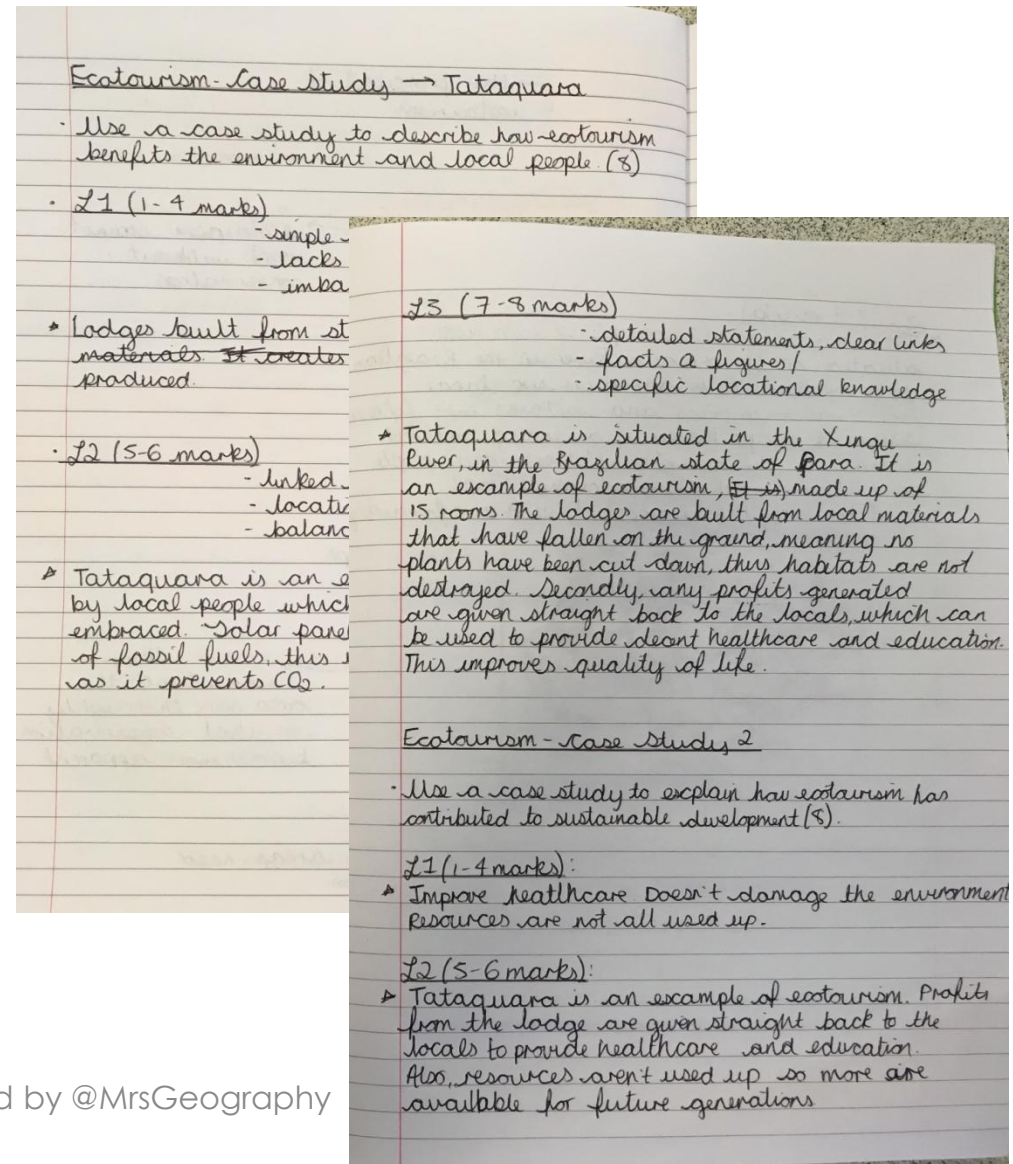 Ecotourism - Case study → Tataquara
· Use a case study to describe how ecotourism
benefits the environment and local people. (8)
· L1 (1-4 marks)
- simple
- lacks
- imba
* Lodges built from st
materials. It creates
produced.
· L2 (5-6 marks)
- linked
- locatio
- balanc
* Tataquara is an e
by local people which
embraced. Solar panel
of fossil fuels, this
as it prevents CO2.
L3 (7-8 marks)
- detailed statements, clear links
- facts & figures/
- specific locational knowledge
* Tataquara is situated in the Xingu
River, in the Brazilian state of Para. It is
an example of ecotourism, (It is) made up of
15 rooms. The lodges are built from local materials
that have fallen on the ground, meaning no
plants have been cut down, thus habitats are not
destroyed. Secondly, any profits generated
are given straight back to the locals, which can
be used to provide decent healthcare and education.
This improves quality of life.
Ecotourism - case study 2
· Use a case study to explain how ecotourism has
contributed to sustainable development (8).
L1 (1-4 marks):
* Improve healthcare Doesn't damage the environment
Resources are not all used up.
L2 (5-6 marks):
* Tataquara is an example of ecotourism. Profits
from the lodge are given straight back to the
locals to provide healthcare and education.
Also, resources aren't used up so more are
available for future generations
d by @MrsGeography